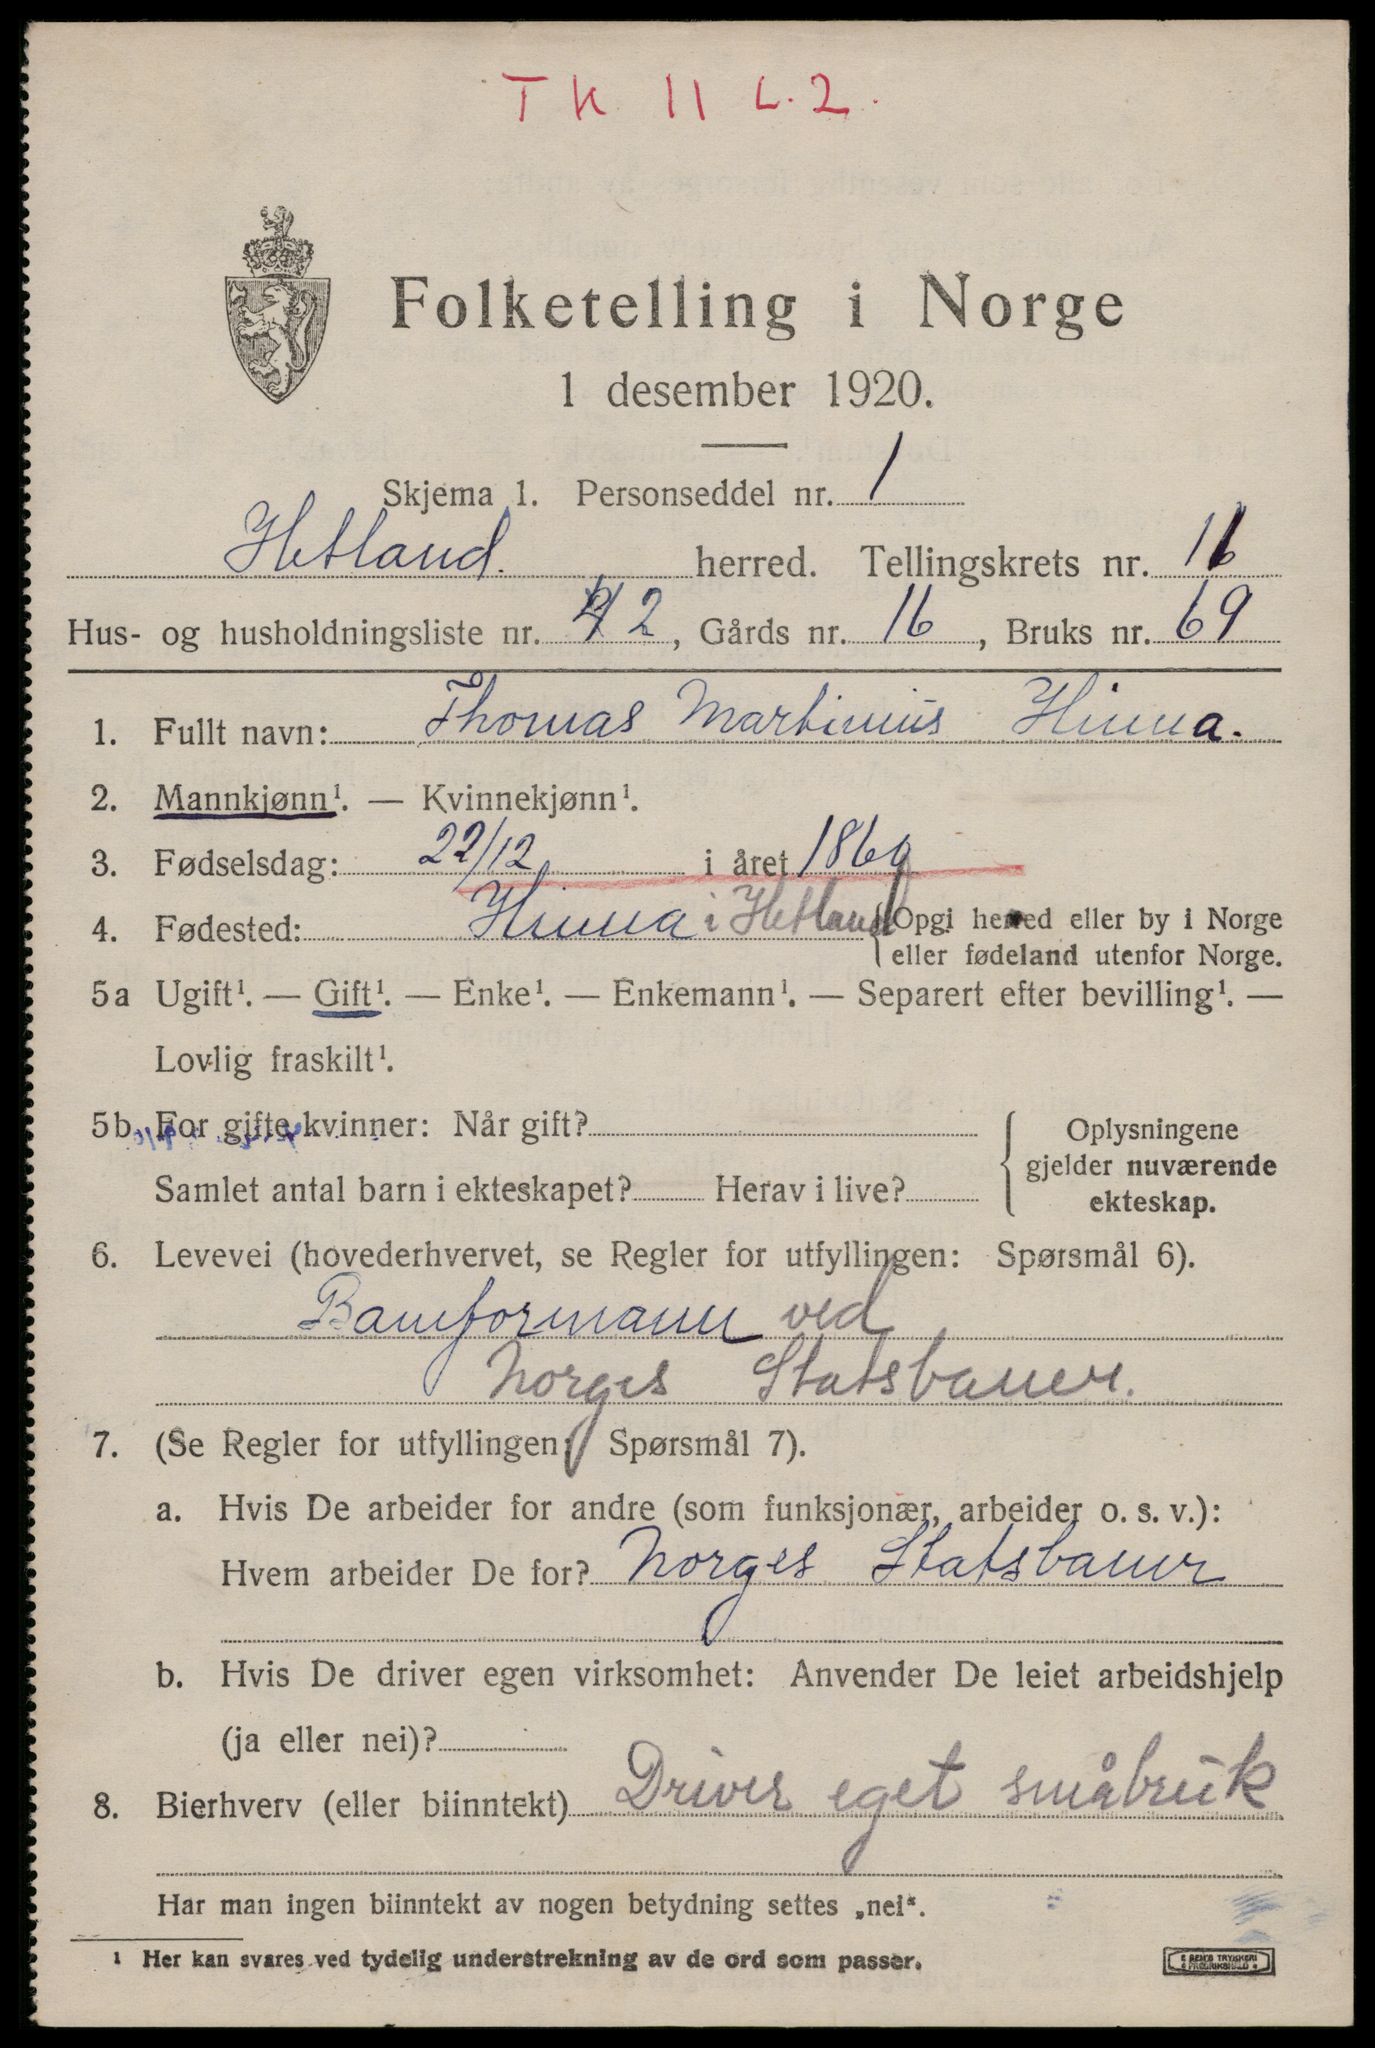 TK 11 L.2.
Folketelling i Norge
1 desember 1920.
Skjema 1. Personseddel nr. 1
Hetland herred. Tellingskrets nr. 11
Hus- og husholdningsliste nr. 2, Gårds nr. 16, Bruks nr. 69
1. Fullt navn: Thomas Martinius Hinna.
2. Mannkjønn¹. — Kvinnekjønn¹.
3. Fødselsdag: 22/12 i året 1869
4. Fødested: Hinna i Hetland { Opgi herred eller by i Norge
eller fødeland utenfor Norge.
5a Ugift¹. — Gift¹. — Enke¹. — Enkemann¹. — Separert efter bevilling¹. —
Lovlig fraskilt¹.
5b. For gifte kvinner: Når gift?
Samlet antal barn i ekteskapet? Herav i live?
{ Oplysningene
gjelder nuværende
ekteskap.
6. Levevei (hovederhvervet, se Regler for utfyllingen: Spørsmål 6).
Baneformann ved
Norges Statsbaner.
7. (Se Regler for utfyllingen: Spørsmål 7).
a. Hvis De arbeider for andre (som funksjonær, arbeider o. s. v.):
Hvem arbeider De for? Norges Statsbaner
b. Hvis De driver egen virksomhet: Anvender De leiet arbeidshjelp
(ja eller nei)?
8. Bierhverv (eller biinntekt) Driver eget småbruk
Har man ingen biinntekt av nogen betydning settes „nei".
¹ Her kan svares ved tydelig understrekning av de ord som passer.